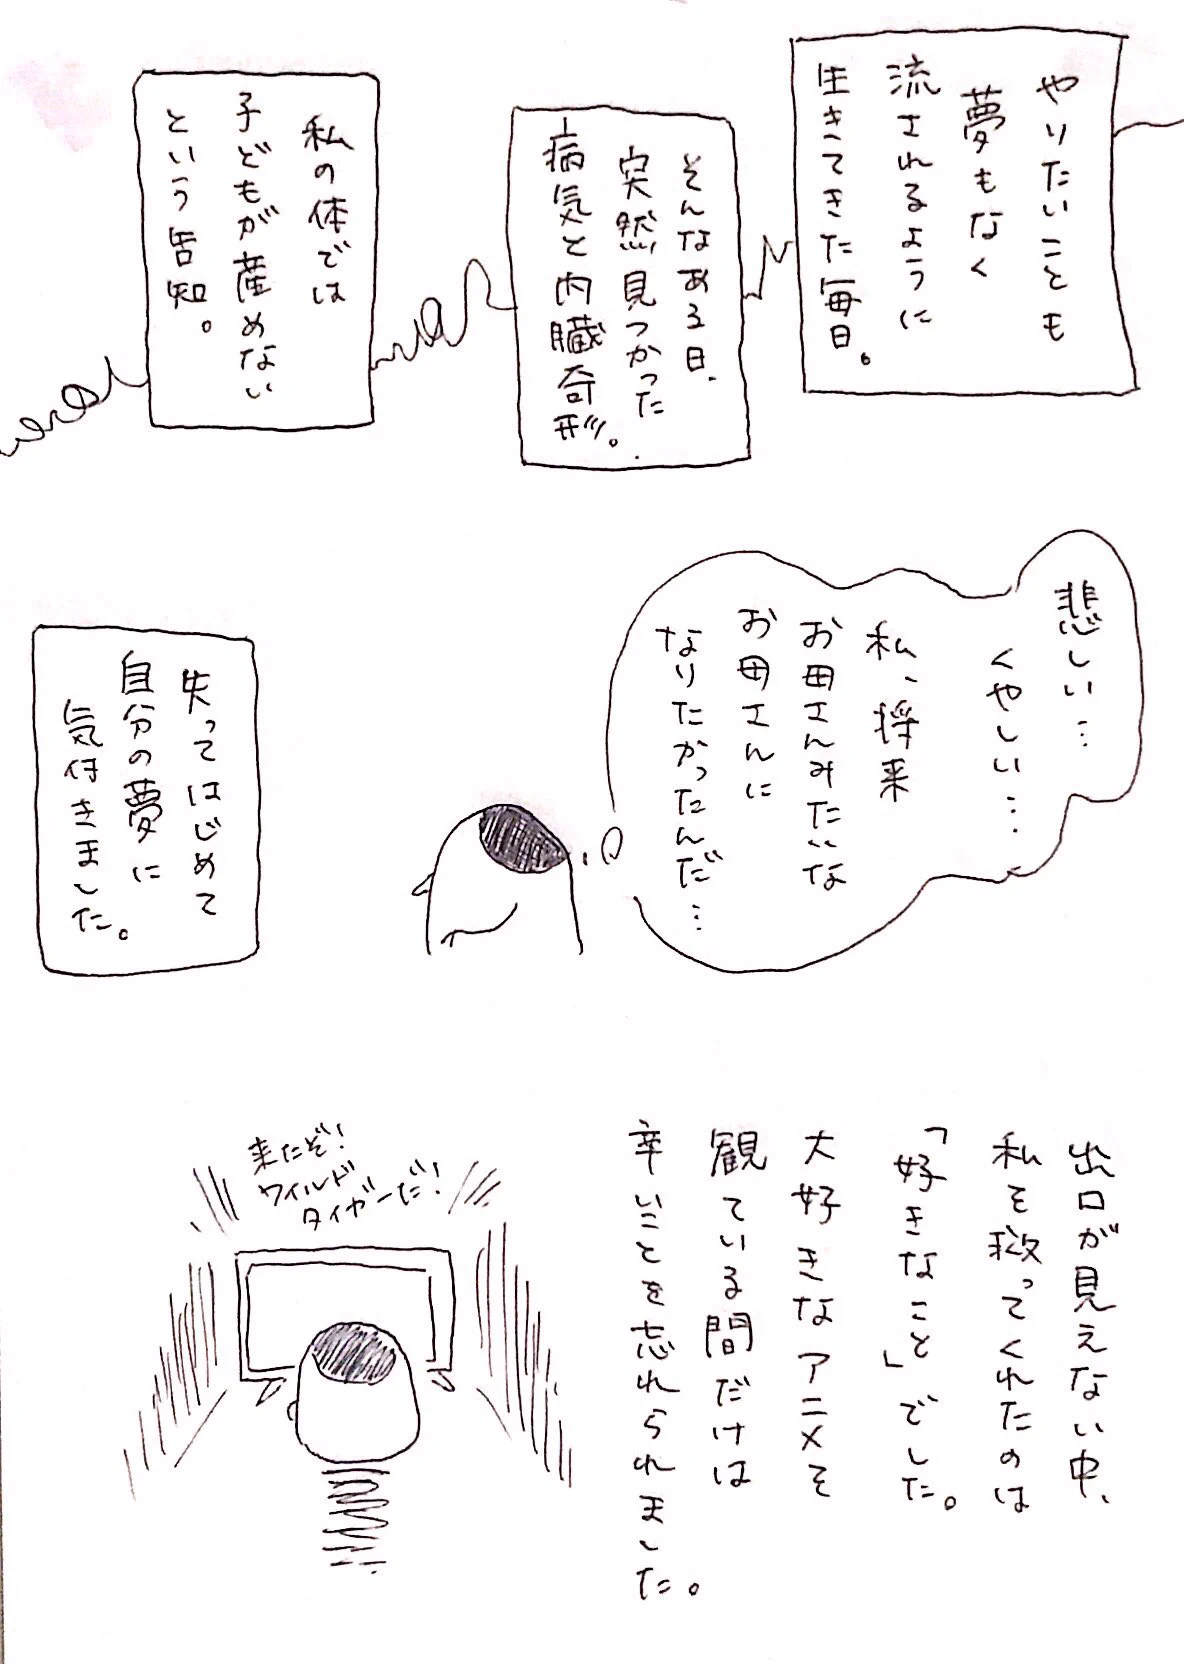 やりたいことも
夢もなく
流されるように
生きてきた毎日。
そんなある日、
突然見つかった
病気と内臓奇形。
私の体では
子どもが産めない
という告知。
悲しい…
くやしい…
私、将来
お母さんみたいな
お母さんに
なりたかったんだ…
失ってはじめて
自分の夢に
気付きました。
出口が見えない中、
私を救ってくれたのは
「好きなこと」でした。
大好きなアニメを
観ている間だけは
辛いことを忘れられました。
来たぞ!
ワイルド
タイガーだ!